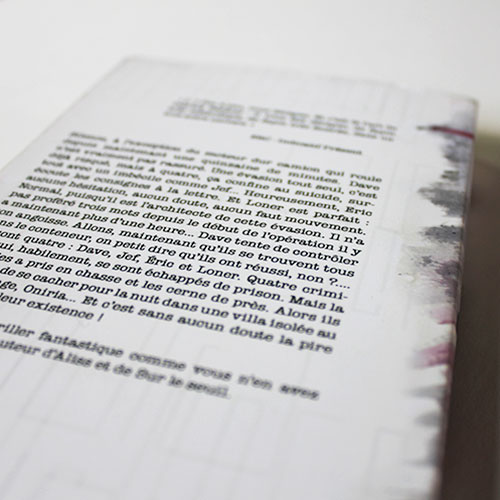 SRC - Indicatif Présent
à l'exception du moteur camion qui roule
depuis maintenant une quinzaine de minutes. Dave
n'est vraiment pas rassuré. Une évasion tout seul, c'est
déjà risqué, mais à quatre, ça confine au suicide, sur-
tout avec un imbécile comme Jef... Heureusement, Éric
écoute les consignes à la lettre. Et Loner est parfait :
aucune hésitation, aucun doute, aucun faux mouvement.
Normal, puisqu'il est l'architecte de cette évasion. Il n'a
pas proféré trois mots depuis le début de l'opération il y
a maintenant plus d'une heure... Dave tente de contrôler
son angoisse. Allons, maintenant qu'ils se trouvent tous
dans le conteneur, on peut dire qu'ils ont réussi, non ?....
sont quatre : Dave, Jef, Éric et Loner. Quatre crimi-
ui, habilement, se sont échappés de prison. Mais la
les a pris en chasse et les cerne de près. Alors ils
de se cacher pour la nuit dans une villa isolée au
ge, Oniria... Et c'est sans aucun doute la pire
leur existence !
riller fantastique comme vous n'en avez
auteur d'Aliss et de Sur le seuil.